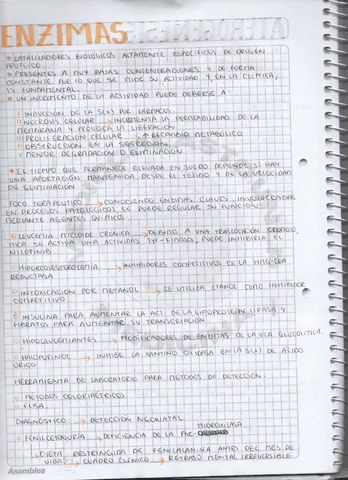 ENZIMAS
• CATALIZADORES BIOLÓGICOS ALTAMENTE ESPECÍFICOS DE ORIGEN
PROTEICO
• PRESENTES A MUY BAJAS CONCENTRACIONES Y DE FORMA
CONSTANTE, POR LO QUE SE MIDE SU ACTIVIDAD Y, EN LA CLÍNICA,
ES FUNDAMENTAL.
• UN INCREMENTO DE LA ACTIVIDAD PUEDE DEBERSE A
INDUCCIÓN DE LA POR FÁRMACOS.
NECROSIS CELULAR → INCREMENTA LA PERMEABILIDAD DE LA
MEMBRANA Y PROVOCA LA LIBERACIÓN
PROLIFERACIÓN CELULAR → ↑ RECAMBIO METABÓLICO
OBSTRUCCIÓN EN LA SECRECIÓN
MENOR DEGRADACIÓN O ELIMINACIÓN
• EL TIEMPO QUE PERMANECE ELEVADA EN SUERO DEPENDE SI HAY
UNA APORTACIÓN MANTENIDA DESDE EL TEJIDO Y DE LA VELOCIDAD
DE ELIMINACIÓN
FOCO TERAPÉUTICO → CONOCIENDO ENZIMAS CLAVES, INVOLUCRADAS
EN PROCESOS PATOLÓGICOS, SE PUEDE REGULAR SU FUNCIÓN
MEDIANTE AGENTES QUÍMICOS:
LEUCEMIA MIELOIDE CRÓNICA → DEBIDO A UNA TRASLOCACIÓN
SE ACTIVA UNA ACTIVIDAD TYR-KINASA, PUEDE INHIBIRLA EL
NILOTINIB
HIPERCOLESTEROLEMIA → INHIBIDORES COMPETITIVOS DE LA HMG-COA
REDUCTASA
INTOXICACIÓN POR METANOL → SE UTILIZA ETANOL COMO INHIBIDOR
COMPETITIVO
INSULINA PARA AUMENTAR LA ACT. DE LA LIPOPROTEÍN LIPASA Y
FIBRATO PARA AUMENTAR SU TRANSCRIPCIÓN
HIPOGLUCEMIANTES → MODIFICADORES DE ENZIMAS DE LA VÍA GLUCOLÍTICA.
→ INHIBE LA XANTINO OXIDASA EN LA DE ÁCIDO
ÚRICO.
HERRAMIENTA DE LABORATORIO PARA MÉTODOS DE DETECCIÓN.
MÉTODOS COLORIMÉTRICOS
ELISA.
DIAGNÓSTICO → DETECCIÓN NEONATAL
HIDROXILASA
FENILCETONURIA → DEFICIENCIA DE LA PHE-
→ DIETA RESTRINGIDA DE FENILALANINA ANTES DEL MES DE
VIDA → CUADRO CLÍNICO → RETRASO MENTAL IRREVERSIBLE
Asamblea